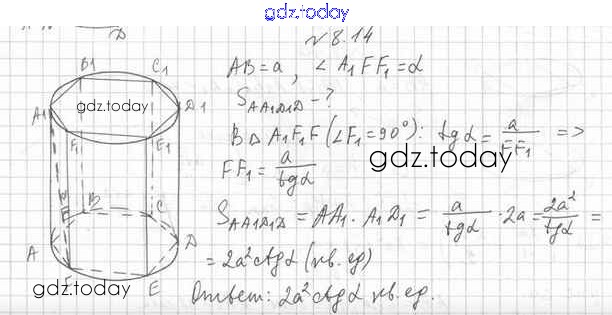 gdz.today
D
№ 8.14
AB = a, ∠ A₁FF₁ = α
S_AA₁D₁D - ?
В △ A₁F₁F (∠F₁ = 90°): tg α = a/FF₁ =>
FF₁ = a/tgα
S_AA₁D₁D = AA₁ · A₁D₁ = a/tgα · 2a = 2a²/tgα =
= 2a² ctg α (кв. ед)
Ответ: 2a² ctg α кв. ед.
B1 C1
A1 D1
F₁ E1
B C
A D
F E
gdz.today
gdz.today
gdz.today